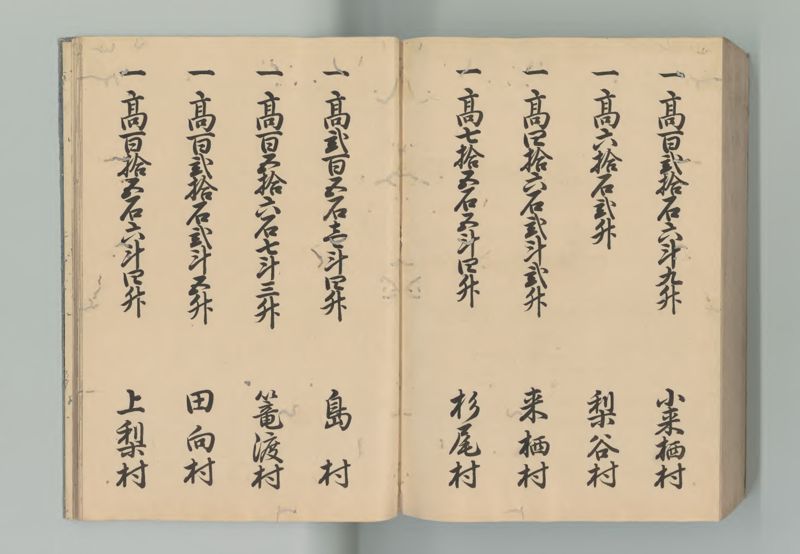 一 高百弐拾石六斗九升 小来栖村
一 高六拾石弐升 梨谷村
一 高四拾六石弐斗弐升 来栖村
一 高七拾五石五斗四升 杉尾村
一 高弐百五石壱斗四升 島村
一 高百五拾六石七斗三升 篭渡村
一 高百弐拾石弐斗五升 田向村
一 高百拾五石六斗四升 上梨村